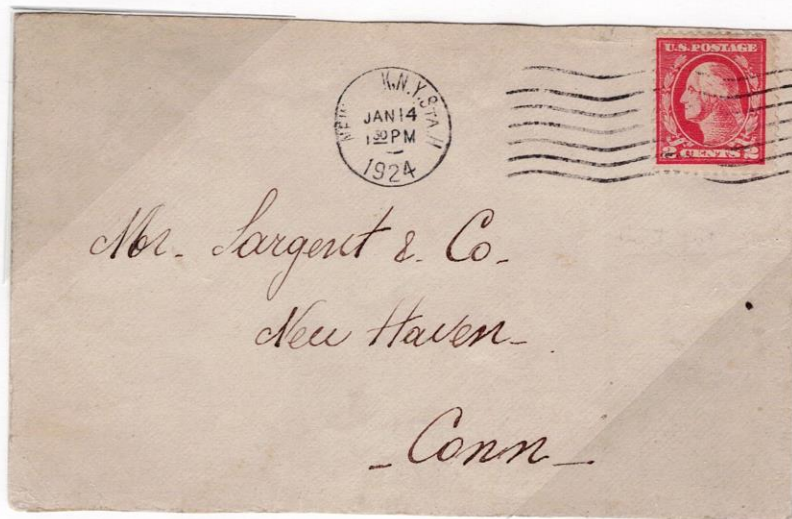 K.N.Y. STA
JAN 14
1 30 PM
1924
U.S. POSTAGE
2 CENTS 2
Mr. Sargent & Co.
New Haven
Conn